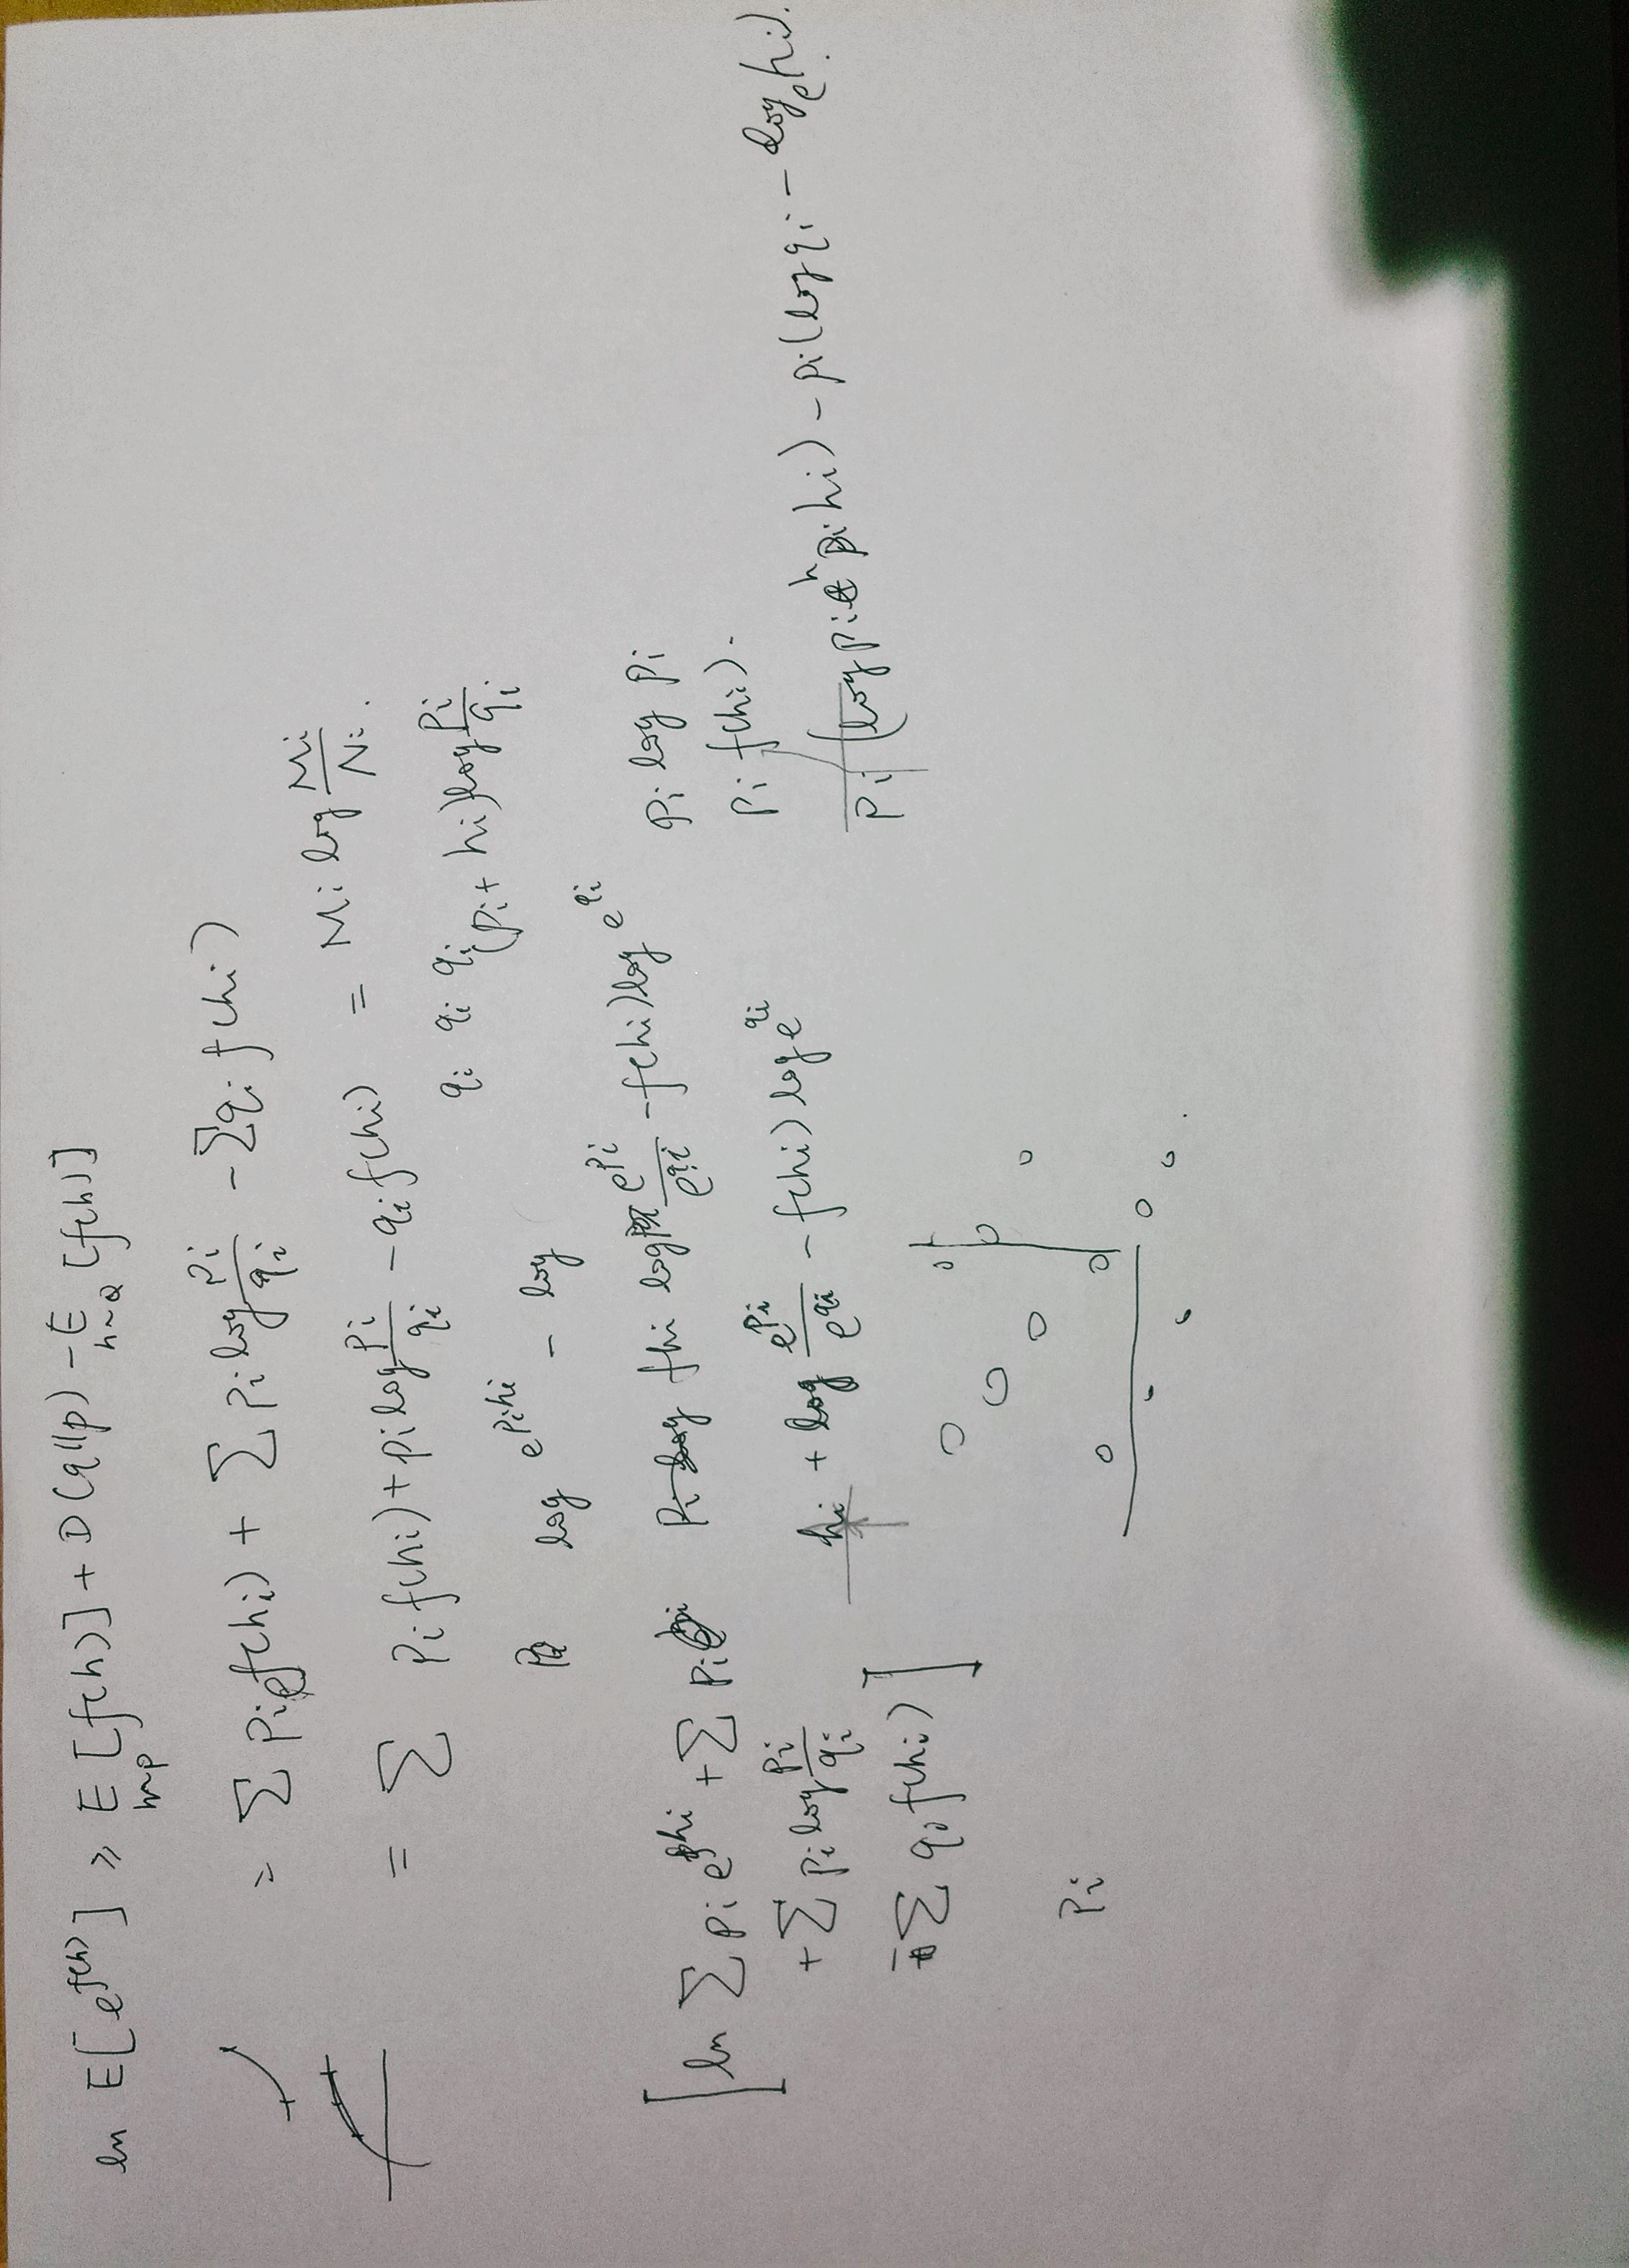 ln E[e^{f(h)}] ≥ E_{h~p} [f(h)] + D(q||p) - E_{h~Q} [f(h)]
= Σ p_i f(h_i) + Σ p_i log p_i/q_i - Σ q_i f(h_i)
= Σ p_i f(h_i) + p_i log p_i/q_i - q_i f(h_i) = M_i log M_i/N_i.
q_i q_i q_i (p_i + h_i) log p_i/q_i
log e^{p_i h_i} - log
[ln Σ p_i e^{fh_i} + Σ p_i
fh_i log e^{p_i}/e^{q_i} - f(h_i) log e^{q_i}
p_i log p_i
+ Σ p_i log p_i/q_i
h_i + log e^{p_i}/e^{q_i} - f(h_i) log e^{q_i}
p_i f(h_i).
p_i (log p_i h_i) - p_i (log q_i - log_e h_i).
- Σ q_i f(h_i)]
p_i